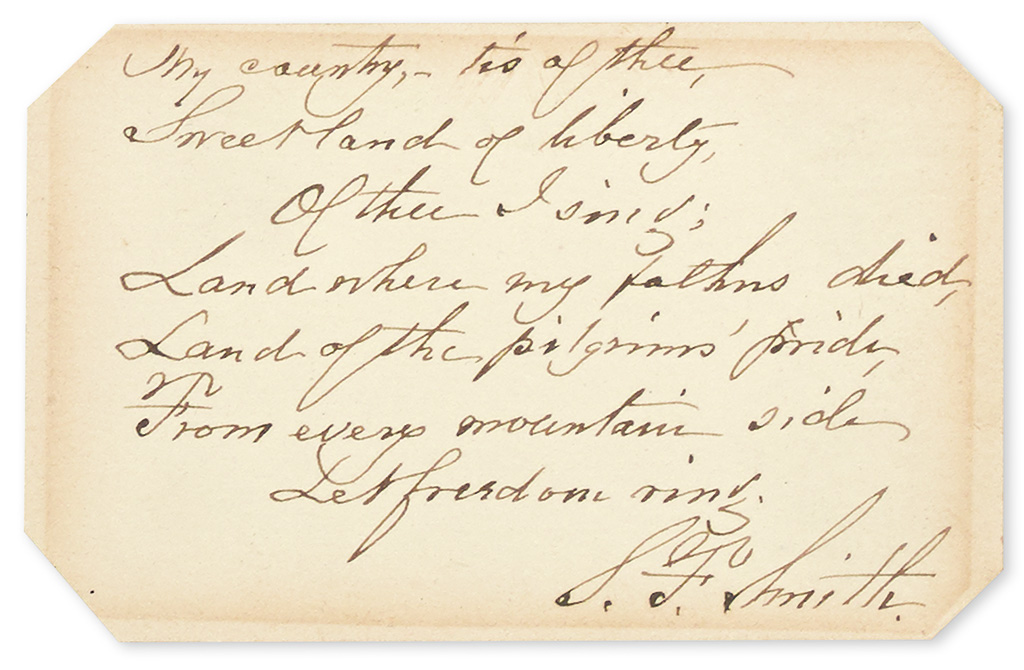 My country,- tis of thee,
Sweet land of liberty,
Of thee I sing;
Land where my fathers died,
Land of the pilgrims' pride,
From every mountain side
Let freedom ring.
S. F. Smith.